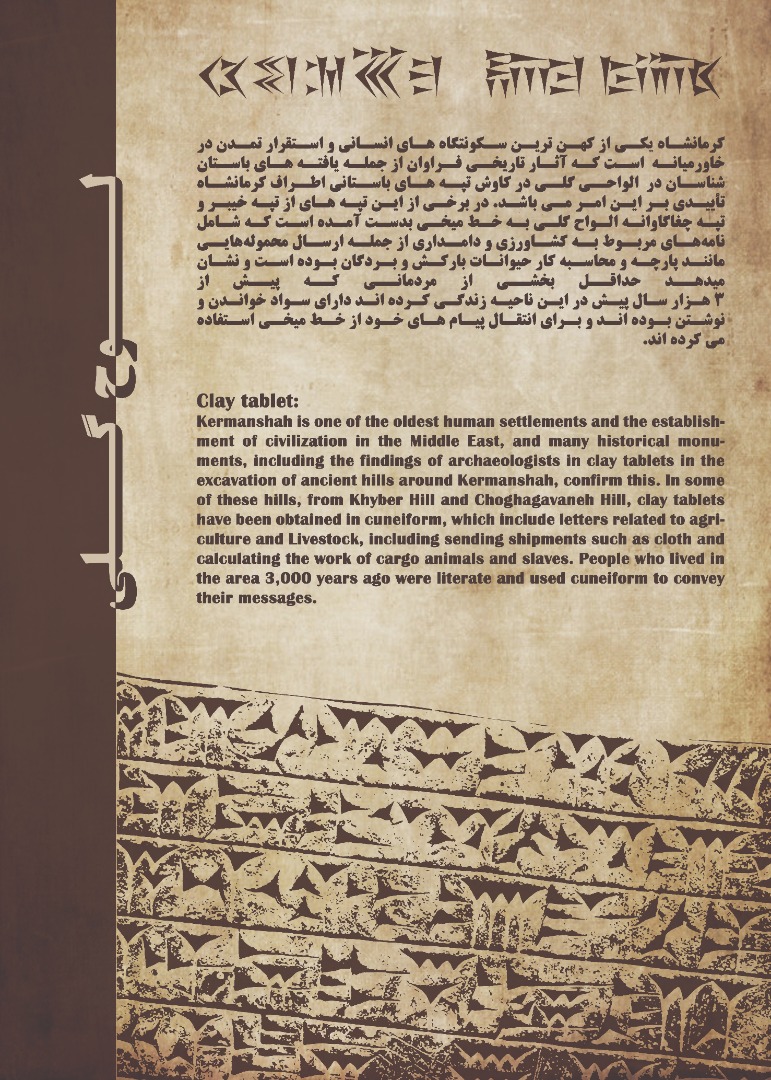 کرمانشاه یکی از کهن ترین سکونتگاه های انسانی و استقرار تمدن در
خاورمیانه است که آثار تاریخی فراوان از جمله یافته های باستان
شناسان در الواحی گلی در کاوش تپه های باستانی اطراف کرمانشاه
تأییدی بر این امر می باشد. در برخی از این تپه های از تپه خیبر و
تپه چغاگاوانه الواح گلی به خط میخی بدست آمده است که شامل
نامه‌های مربوط به کشاورزی و دامداری از جمله ارسال محموله‌هایی
مانند پارچه و محاسبه کار حیوانات بارکش و بردگان بوده است و نشان
میدهد حداقل بخشی از مردمانی که پیش از
۳ هزار سال پیش در این ناحیه زندگی کرده اند دارای سواد خواندن و
نوشتن بوده اند و برای انتقال پیام های خود از خط میخی استفاده
می کرده اند.
لوح گلی
Clay tablet:
Kermanshah is one of the oldest human settlements and the establish-
ment of civilization in the Middle East, and many historical monu-
ments, including the findings of archaeologists in clay tablets in the
excavation of ancient hills around Kermanshah, confirm this. In some
of these hills, from Khyber Hill and Choghagavaneh Hill, clay tablets
have been obtained in cuneiform, which include letters related to agri-
culture and Livestock, including sending shipments such as cloth and
calculating the work of cargo animals and slaves. People who lived in
the area 3,000 years ago were literate and used cuneiform to convey
their messages.